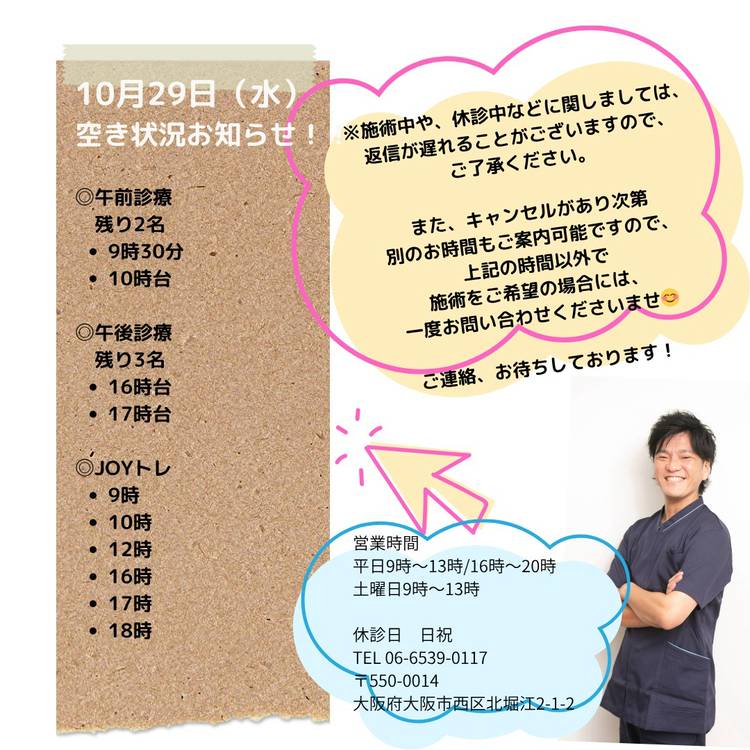 10月29日（水）
空き状況お知らせ！
◎午前診療
残り2名
• 9時30分
• 10時台
◎午後診療
残り3名
• 16時台
• 17時台
◎JOYトレ
• 9時
• 10時
• 12時
• 16時
• 17時
• 18時
※施術中や、休診中などに関しましては、
返信が遅れることがございますので、
ご了承ください。
また、キャンセルがあり次第
別のお時間もご案内可能ですので、
上記の時間以外で
施術をご希望の場合には、
一度お問い合わせくださいませ😊
ご連絡、お待ちしております！
営業時間
平日9時～13時/16時～20時
土曜日9時～13時
休診日　日祝
TEL 06-6539-0117
〒550-0014
大阪府大阪市西区北堀江2-1-2